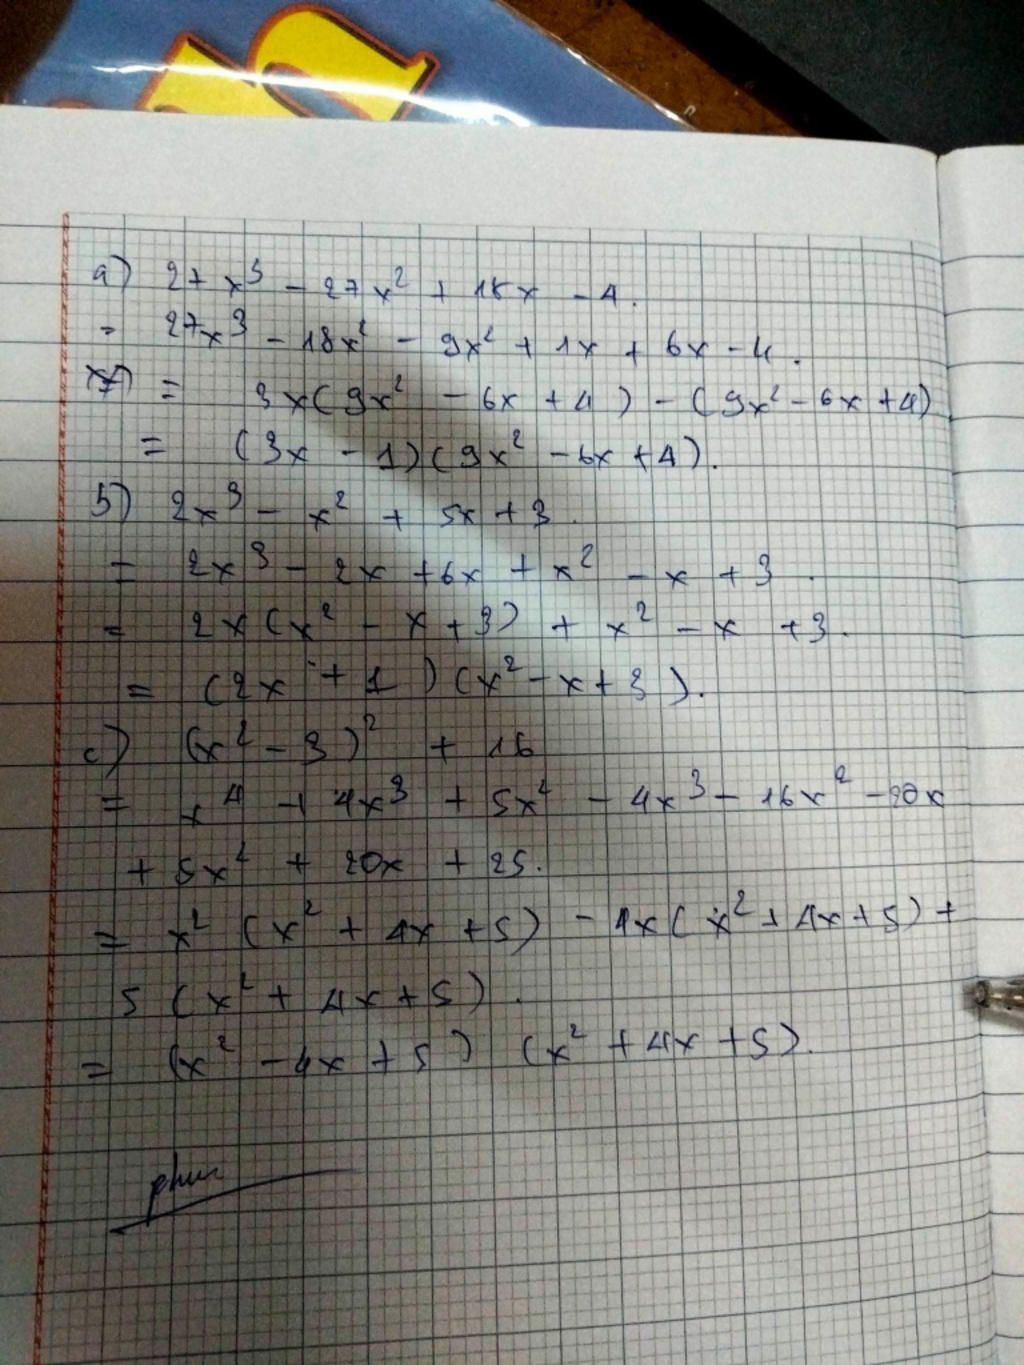 a) 27x³ - 27x² + 18x - 4.
= 27x³ - 18x² - 9x² + 1x + 6x - 4.
= 3x(9x² - 6x + 4) - (9x² - 6x + 4)
= (3x - 1)(9x² - 6x + 4).
b) 2x³ - x² + 5x + 3.
= 2x³ - 2x + 6x + x² - x + 3.
= 2x(x² - x + 3) + x² - x + 3.
= (2x + 1)(x² - x + 3).
c) (x² - 3)² + 16
= x⁴ + 4x³ + 5x² - 4x³ - 16x² - 20x
+ 5x² + 20x + 25.
= x² (x² + 4x + 5) - 4x(x² + 4x + 5) +
5 (x² + 4x + 5).
= (x² - 4x + 5) (x² + 4x + 5).